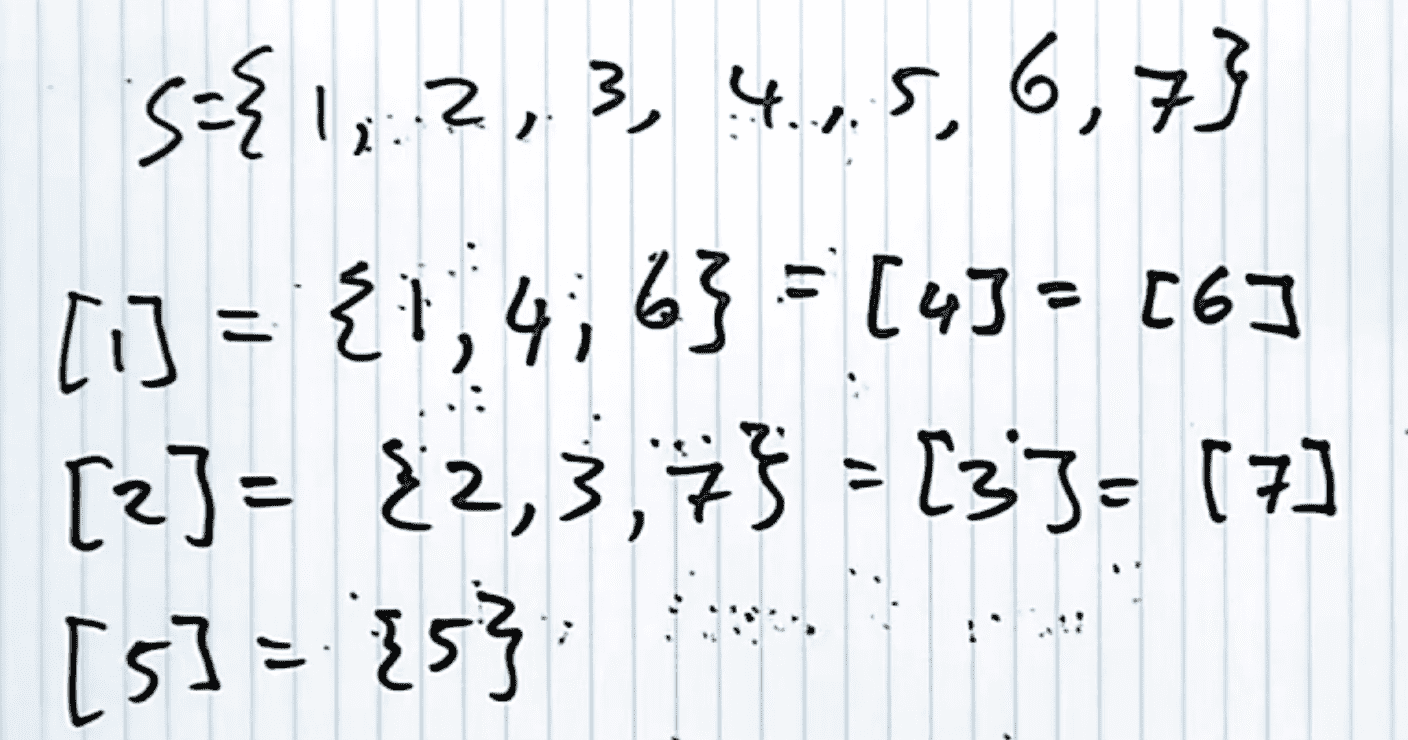 S={ 1, 2, 3, 4, 5, 6, 7}
[1] = {1, 4, 6} = [4] = [6]
[2] = {2, 3, 7} = [3] = [7]
[5] = {5}